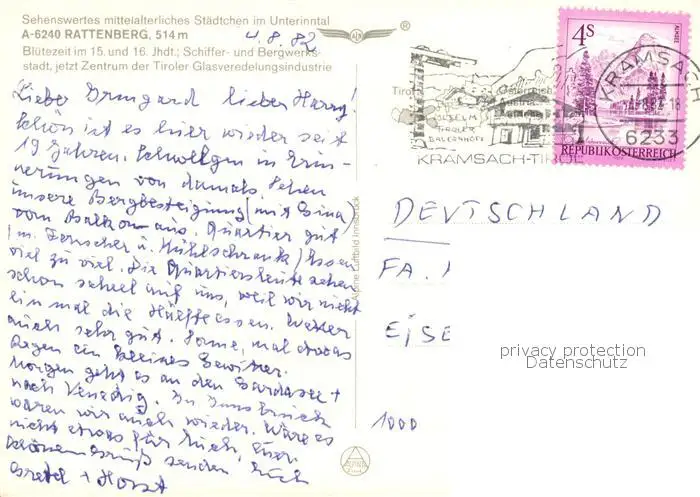 Sehenswertes mittelalterliches Städtchen im Unterinntal
A-6240 RATTENBERG, 514 m
Blütezeit im 15. und 16. Jhdt.; Schiffer- und Bergwerks-
stadt, jetzt Zentrum der Tiroler Glasveredelungsindustrie
4.8.82
®
Lieber Irmgard lieber Harry!
Schön ist es hier wieder seit
19 Jahren. Schwelgen in Erin-
nerungen von damals. Sehen
unsere Bergbesteigung (mit Gina)
vom Balkon aus. Quartier gut
m. Fernseher u. Kühlschrank/Essen
viel zu viel. Die Quartiersleute sehen
schon scheel auf uns, weil wir nicht
einmal die Hälfte essen. Wetter
auch sehr gut. Sonne, mal etwas
Regen ein kleines Gewitter.
Morgen geht es an den Gardasee +
nach Venedig. In Innsbruck
waren wir auch wieder. Wäre es
nicht etwas für Euch,
schönen Gruß senden Euch
Gretel + Horst
Alpine Luftbild Innsbruck
Tirol
Österreich
Austria
MUSEUM
TIROLER
BAUERNHÖFE
KRAMSACH-TIROL
4S
ALMSEE
REPUBLIK ÖSTERREICH
KRAMSACH
6233
DEUTSCHLAND
FA.
EISE
1000
privacy protection
Datenschutz